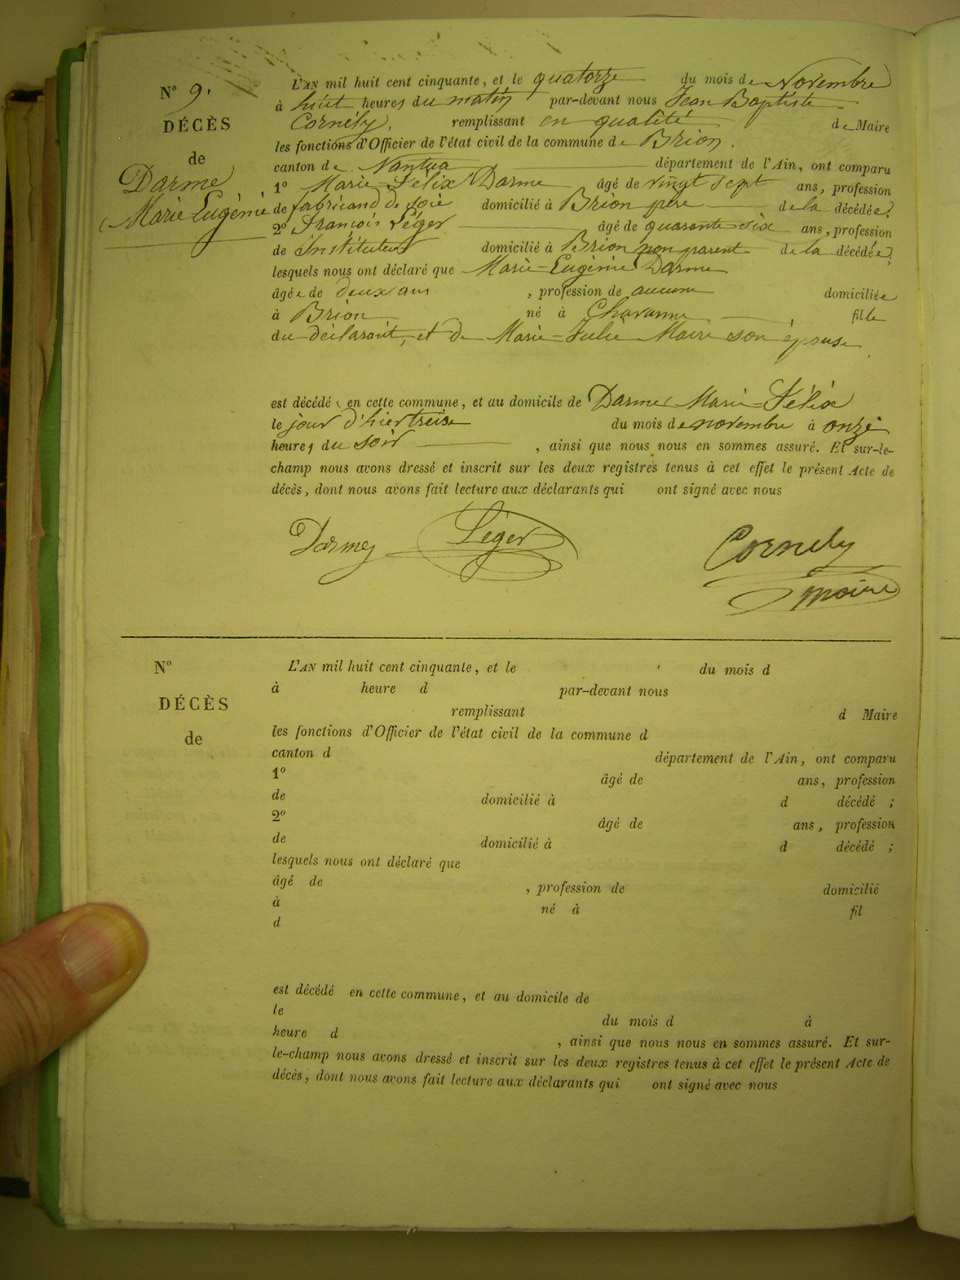 N° 9.
DÉCÈS
de
Darme,
Marie Eugénie
L'AN mil huit cent cinquante, et le quatorze du mois de Novembre
à huit heures du matin par-devant nous Jean Baptiste
Cornély, remplissant en qualité de Maire
les fonctions d'Officier de l'état civil de la commune de Brion.
canton de Nantua département de l'Ain, ont comparu
1° Marie Félix Darme âgé de vingt sept ans, profession
de fabricand de soie domicilié à Brion père de la décédée;
2° François Léger âgé de quarante-six ans, profession
de Instituteur domicilié à Brion non parent de la décédée;
lesquels nous ont déclaré que Marie-Eugénie Darme
âgée de deux ans , profession de aucune domiciliée
à Brion né à Chavanne , fille
du déclarant, et de Marie-Julie Maire son épouse.
est décédé en cette commune, et au domicile de Darme Marie-Félix
le jour d'hier treise du mois de novembre à onze
heures du soir , ainsi que nous nous en sommes assuré. Et sur-le-
champ nous avons dressé et inscrit sur les deux registres tenus à cet effet le présent Acte de
décès, dont nous avons fait lecture aux déclarants qui ont signé avec nous
Darme Léger Cornély
maire
N°
DÉCÈS
de
L'AN mil huit cent cinquante, et le du mois d
à heure d par-devant nous
remplissant d Maire
les fonctions d'Officier de l'état civil de la commune d
canton d département de l'Ain, ont comparu
1° âgé de ans, profession
de domicilié à d décédé ;
2° âgé de ans, profession
de domicilié à d décédé ;
lesquels nous ont déclaré que
âgé de , profession de domicilié
à né à fil
d
est décédé en cette commune, et au domicile de
le du mois d à
heure d , ainsi que nous nous en sommes assuré. Et sur-
le-champ nous avons dressé et inscrit sur les deux registres tenus à cet effet le présent Acte de
décès, dont nous avons fait lecture aux déclarants qui ont signé avec nous